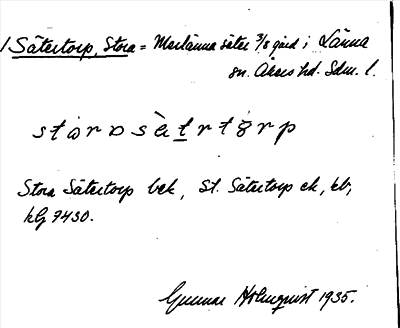 / Sätertorp, Stora = Marlänna säter 3/8 gård i Länna
sn. Åkers hd. Sdm. l.
Stora Sätertorp bek, St. Sätertorp ek, kb,
kbg 7430.
Gunnar Holmquist 1935.